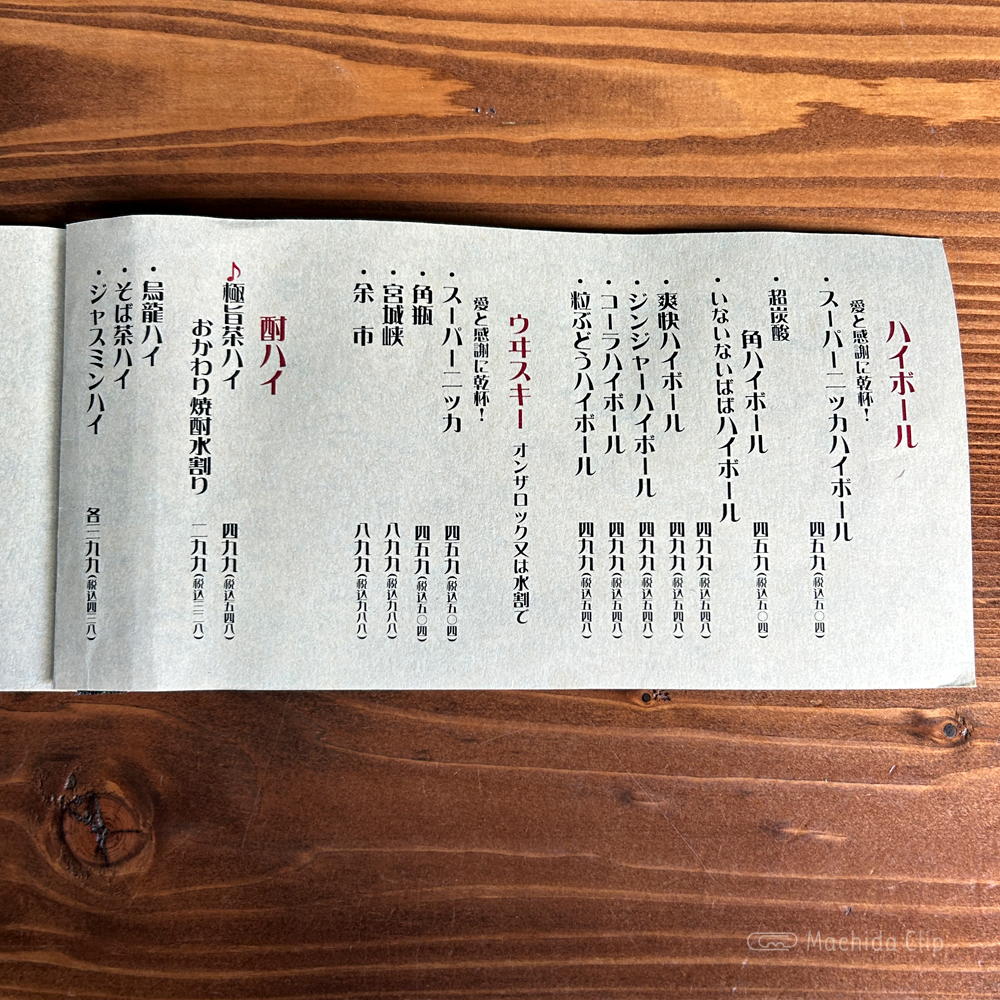 ハイボール
愛と感謝に乾杯!
・スーパーニッカハイボール 四五九(税込五〇四)
・超炭酸
角ハイボール 四五九(税込五〇四)
・いないないばばハイボール 四九九(税込五四八)
・爽快ハイボール 四九九(税込五四八)
・ジンジャーハイボール 四九九(税込五四八)
・コーラハイボール 四九九(税込五四八)
・粒ぶどうハイボール 四九九(税込五四八)
ウヰスキー オンザロック又は水割で
愛と感謝に乾杯!
・スーパーニッカ 四五九(税込五〇四)
・角瓶 四五九(税込五〇四)
・宮城峡 八九九(税込九八八)
・余市 八九九(税込九八八)
酎ハイ
♪極旨茶ハイ 四九九(税込五四八)
おかわり焼酎水割り 二九九(税込三二八)
・烏龍ハイ
・そば茶ハイ
・ジャスミンハイ 各三九九(税込四三八)
Machida Clip